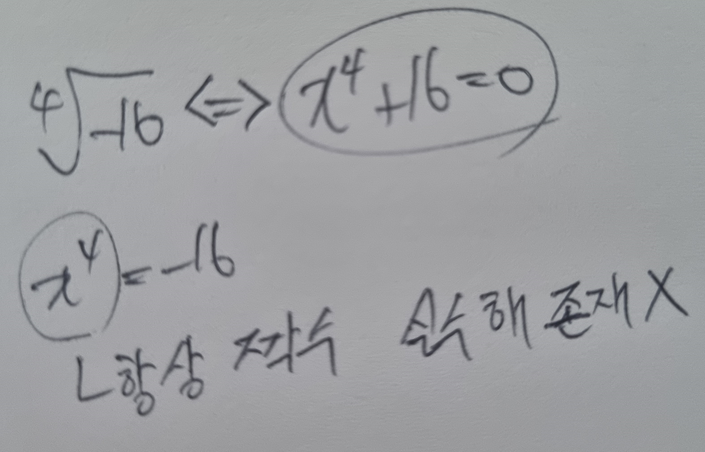 ⁴√-16 <=> x⁴+16=0
x⁴=-16
ㄴ항상 짝수 실수해 존재 X